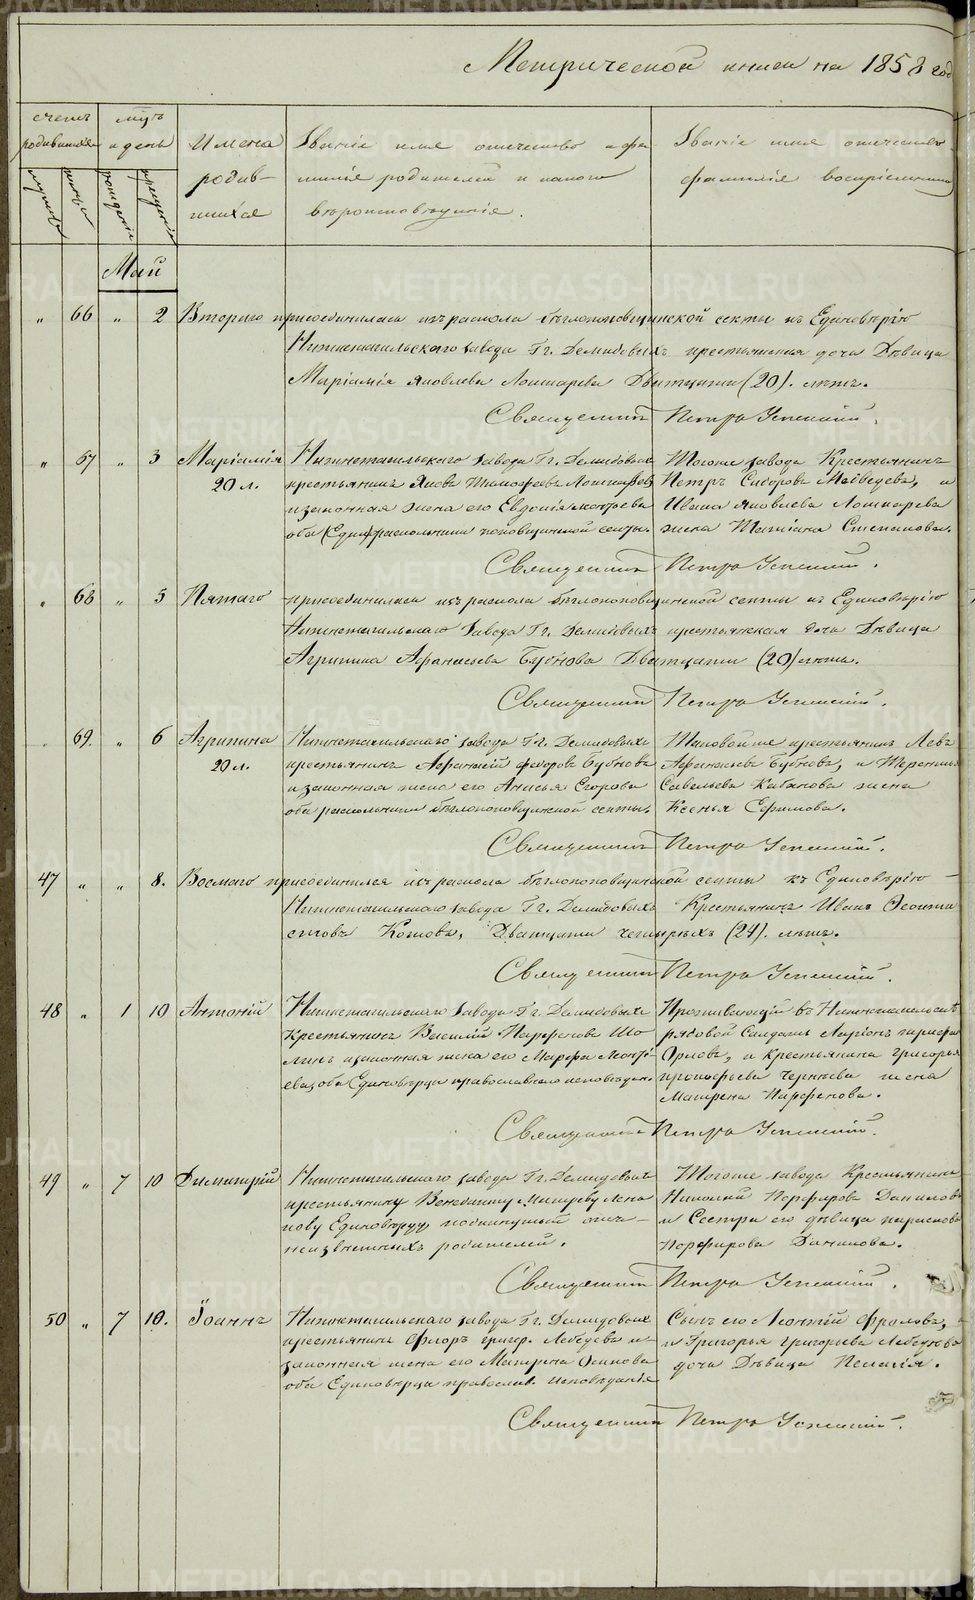 Метрической книги на 1858 год
счетъ родившихся
мужеска
женска
мѣц. и день
рожденія
крещенія
Имена родив-шихся
Званіе имя отчество и фа-
милія родителей и какого
вѣроисповѣданія.
Званіе имя отчество
фамилія воспріемник
Май
" 66 " 2 Втораго присоединилась изъ раскола бѣглопоповщинской секты къ Единовѣрію
Нижнетагильскаго завода Гг. Демидовыхъ крестьянская дочь Дѣвица
Маріамія Яковлева Лошкарева Дватцати (20). лѣтъ.
Священникъ Петръ Успенскій.
" 67 " 3 Маріамія
20 л.
Нижнетагильскаго завода Гг. Демидовыхъ
крестьянинъ Яковъ Тимофеевъ Лошкаревъ
и законная жена его Евдокія
оба раскольники поповщинской секты.
Тогоже завода Крестьянинъ
Петръ Сидоровъ Медведевъ, и
Ивана Яковлева Лошкарева
жена Татіана Степанова.
Священникъ Петръ Успенскій.
" 68 " 5 Пятаго присоединилась изъ раскола бѣглопоповщинской секты къ Единовѣрію
Нижнетагильскаго завода Гг. Демидовыхъ крестьянская дочь Дѣвица
Агрипина Афанасьева Бубнова Дватцати (20) лѣтъ.
Священникъ Петръ Успенскій.
69. " 6 Агрипина
20 л.
Нижнетагильскаго завода Гг. Демидовыхъ
крестьянинъ Афанасій Федоровъ Бубновъ
и законная жена его Анисья Егорова
оба раскольники бѣглопоповщинской секты.
Таковой же крестьянинъ Левъ
Афанасьевъ Бубновъ, и Терентья
Савельева Кабанова жена
Ксенья Ефимова.
Священникъ Петръ Успенскій.
47 " " 8. Восмаго присоединился изъ раскола бѣглопоповщинской секты къ Единовѣрію
Нижнетагильскаго завода Гг. Демидовыхъ Крестьянинъ Иванъ
Котовъ, Дватцати четырехъ (24). лѣтъ.
Священникъ Петръ Успенскій.
48 " 1 10 Антоній
Нижнетагильскаго завода Гг. Демидовыхъ
Крестьянинъ Василій Парфенова Шо
линъ и законная жена его Марфа
оба Единовѣрцы православнаго исповѣдан.
Проживающій въ Нижнетагильск
рядовой Салдатъ Ларіонъ
Орловъ, и крестьянина Григорья
Прокофьева Чернѣева жена
Матрена Парфенова.
Священникъ Петръ Успенскій.
49 " 7 10 Димитрій
Нижнетагильскаго завода Гг. Демидовыхъ
крестьянину
Единовѣрцу подкинутый отъ-
неизвѣстныхъ родителей.
Тогоже завода Крестьянинъ
Николай Порфировъ Даниловъ
и Сестра его дѣвица
Порфирова Данилова.
Священникъ Петръ Успенскій.
50 " 7 10. Іоаннъ
Нижнетагильскаго завода Гг. Демидовыхъ
крестьянинъ Флоръ Григор. Лебедевъ и
законная жена его Матрена Осипова
оба Единовѣрцы православ. исповѣданія
Сынъ его Леонтій Фроловъ,
и Григорья Григорьева Лебедева
дочь Дѣвица Пелагія.
Священникъ Петръ Успенскій.
METRIKI.GASO-URAL.RU